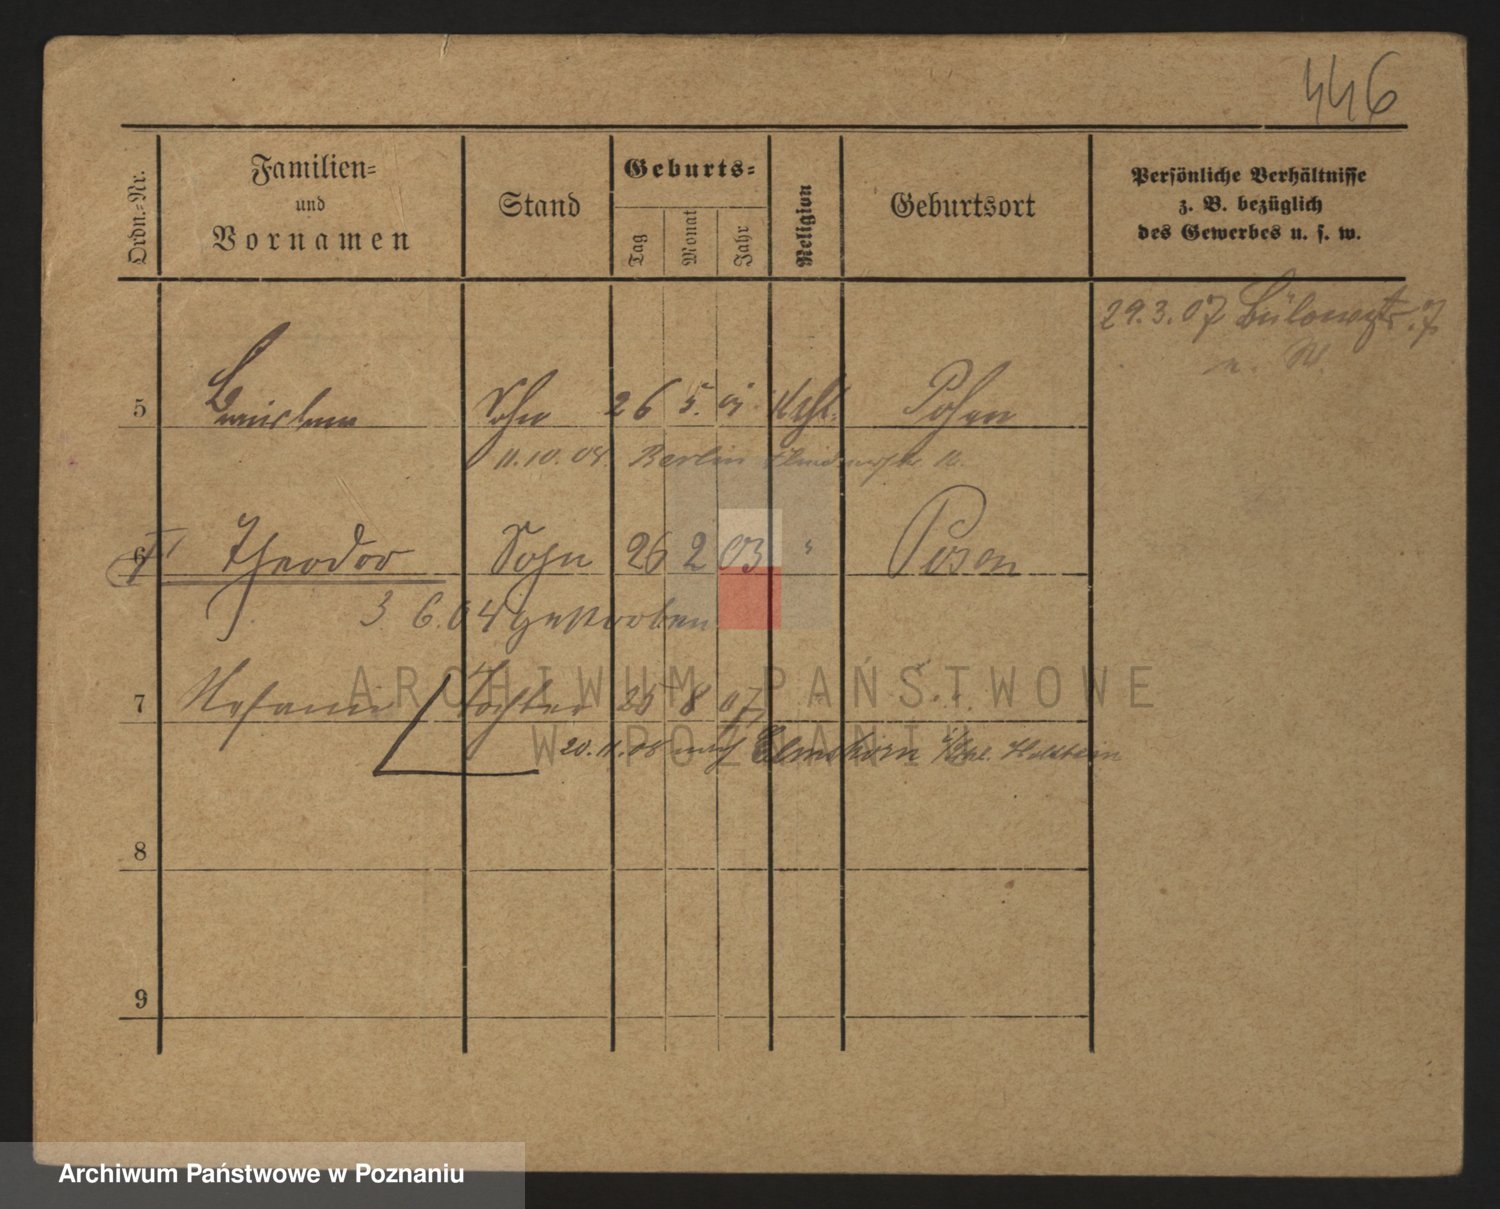 446
Ordn.-Nr.
Familien-
und
Vornamen
Stand
Geburts-
Tag
Monat
Jahr
Religion
Geburtsort
Persönliche Verhältnisse
z. B. bezüglich
des Gewerbes u. s. w.
29.3.07 Bülowstr. 7
5 Sohn 26 5. Kath. Posen
11.10.08. Berlin
6 Theodor Sohn 26 2 03 " Posen
3. 6. 04 gestorben
7 Tochter 25 8 07
20.11.08 nach Elmshorn Holstein
8
9
ARCHIWUM PAŃSTWOWE
W POZNANIU
Archiwum Państwowe w Poznaniu